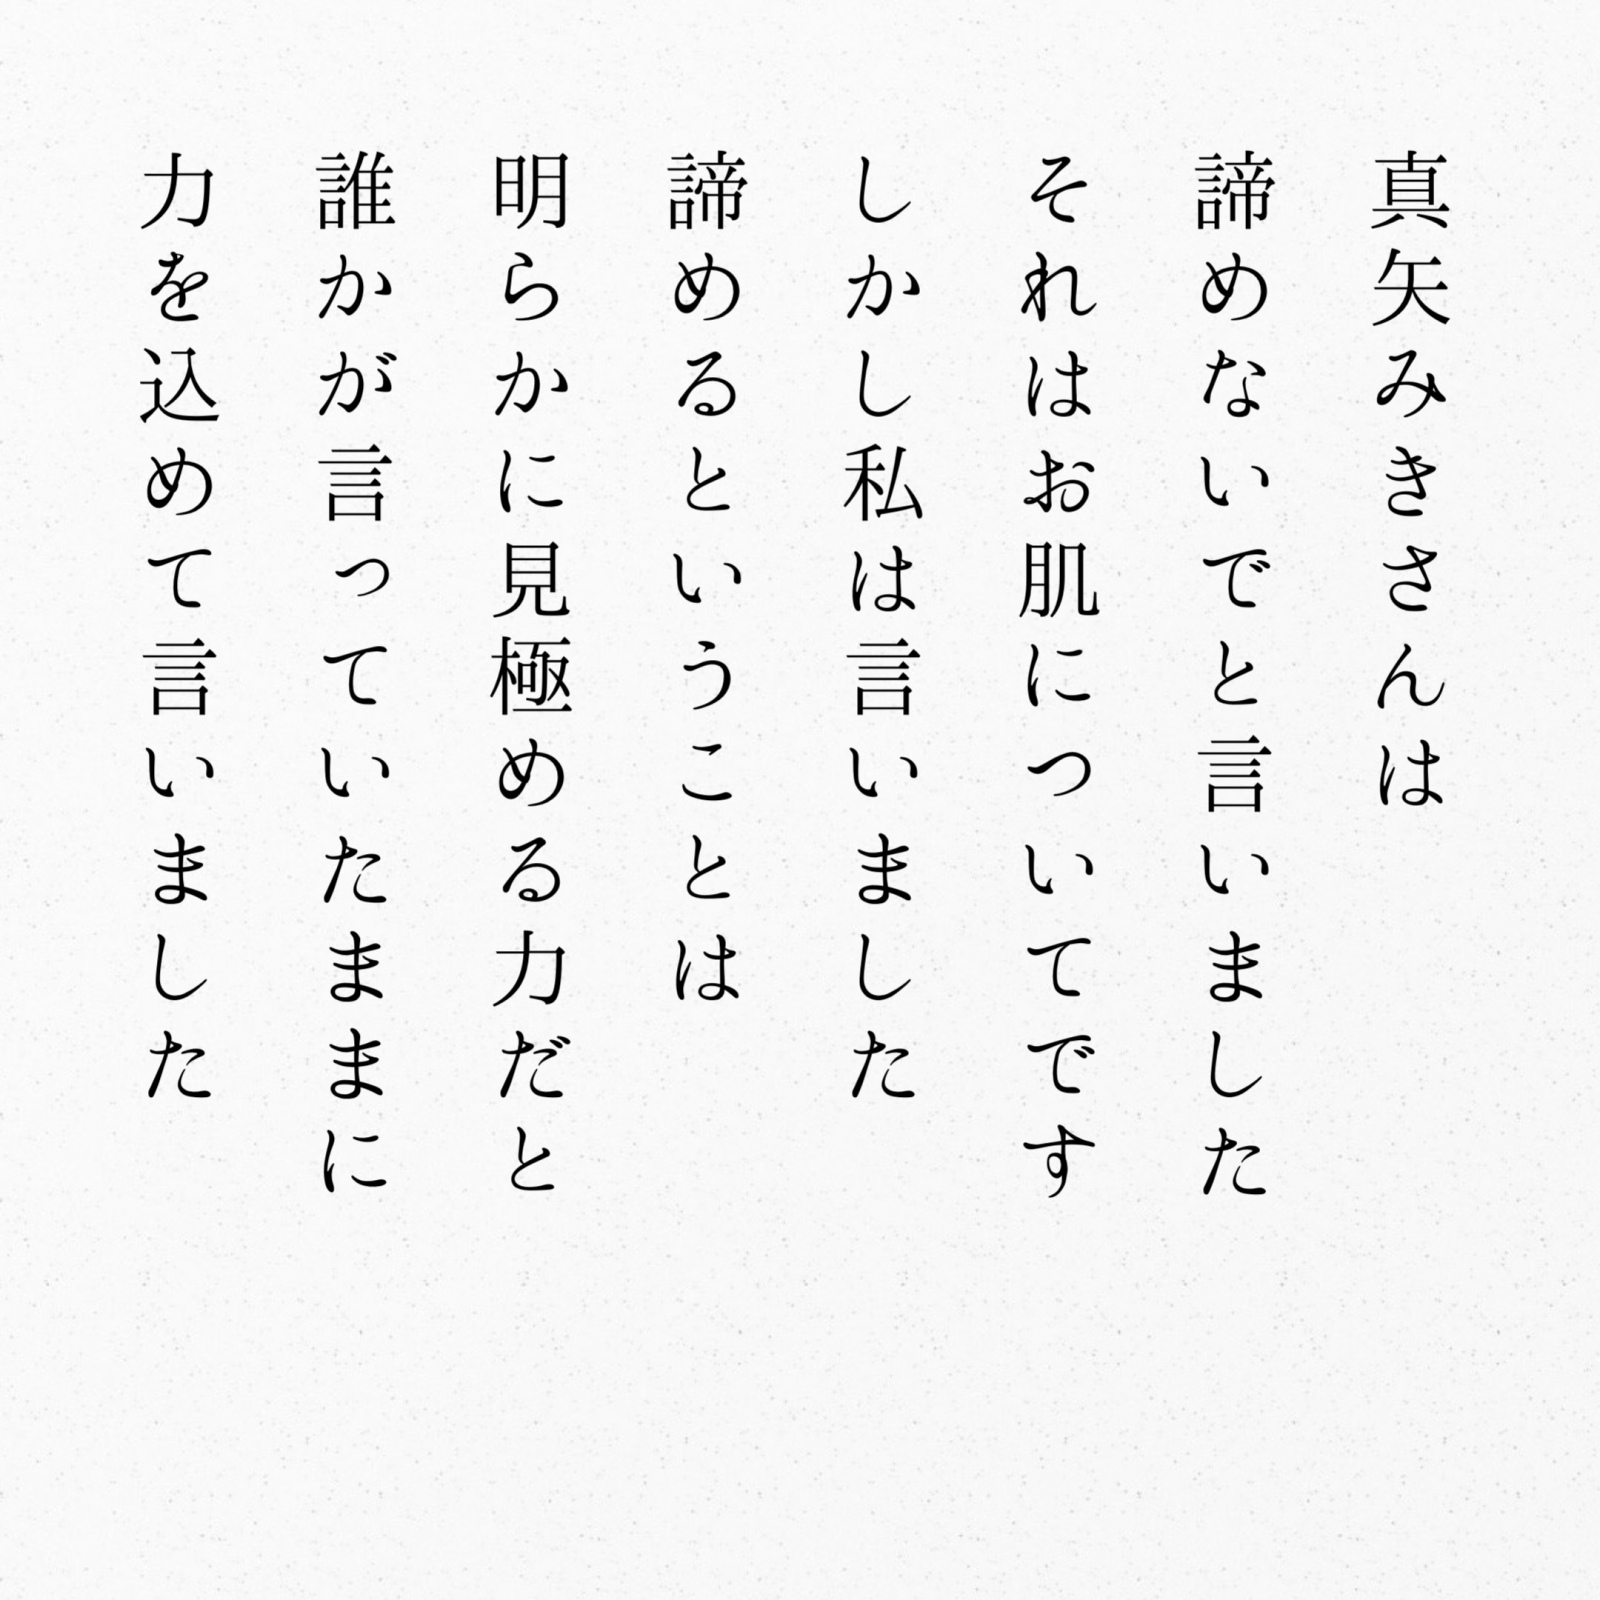 真矢みきさんは
諦めないでと言いました
それはお肌についてです
しかし私は言いました
諦めるということは
明らかに見極める力だと
誰かが言っていたままに
力を込めて言いました